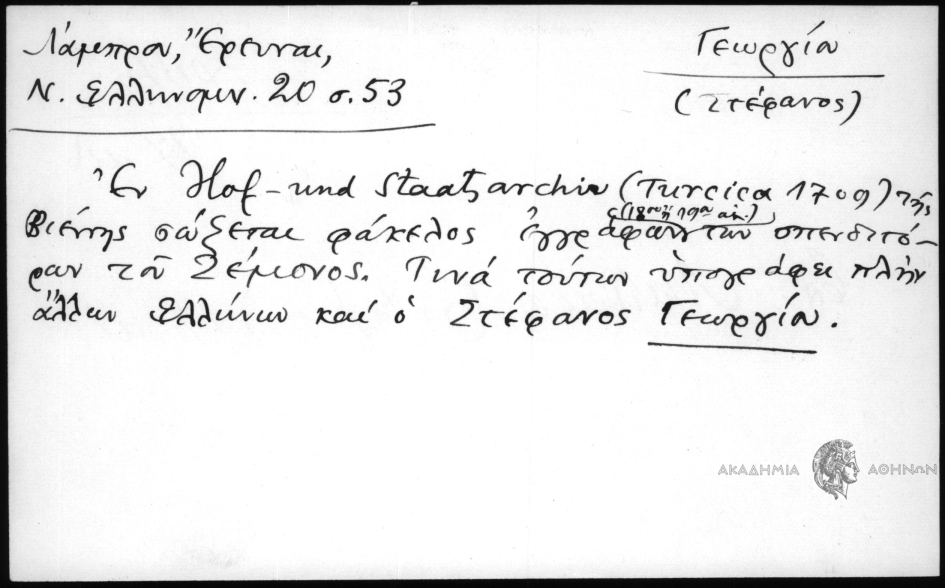 Λάμπρου, Ἔρευναι,
Ν. Ἑλληνομν. 20 σ. 53
Γεωργίου
(Στέφανος)
Ἐν Hof-und Staatsarchiv (Turcica 1709) τῆς
Βιέννης σώζεται φάκελος ἐγγράφων τῶν σπεντιτό-
(18ου ἢ 19ου αἰ.)
ρων τοῦ Ζέμονος. Τινά τούτων ὑπογράφει πλὴν
ἄλλων Ἑλλήνων καί ὁ Στέφανος Γεωργίου.
ΑΚΑΔΗΜΙΑ ΑΘΗΝΩΝ